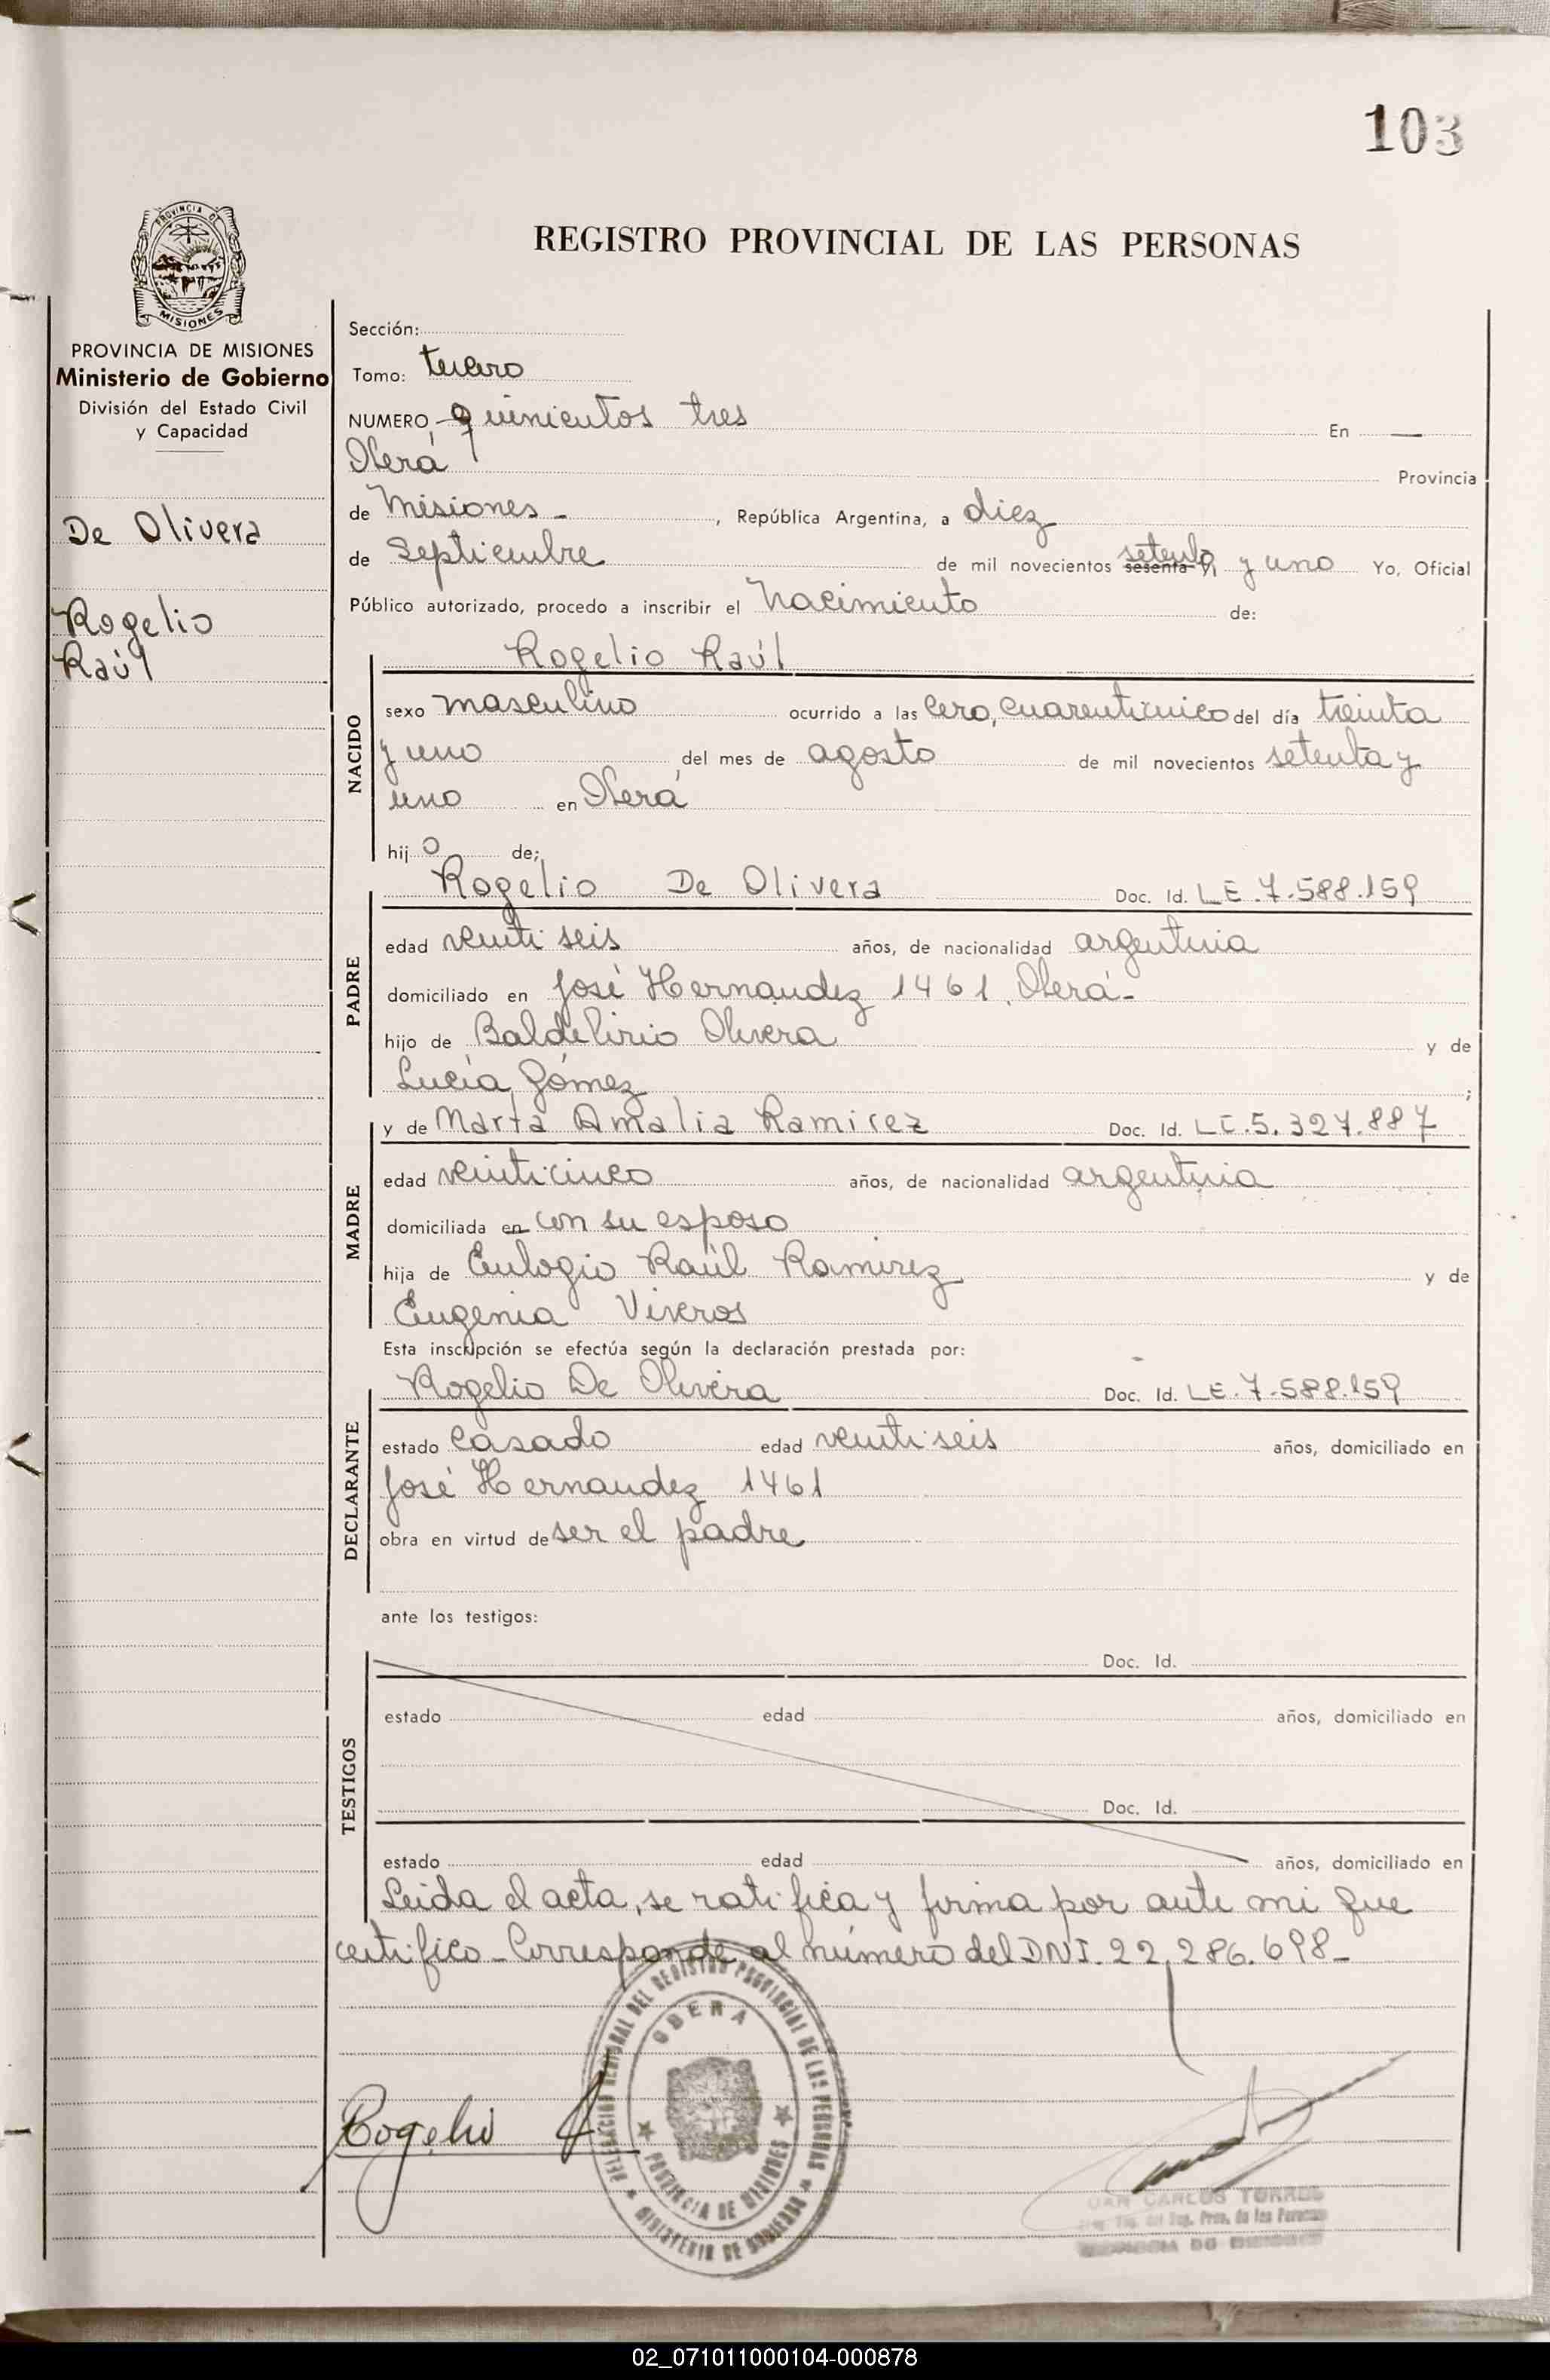 103
PROVINCIA DE
MISIONES
REGISTRO PROVINCIAL DE LAS PERSONAS
PROVINCIA DE MISIONES
Ministerio de Gobierno
División del Estado Civil
y Capacidad
De Olivera
Rogelio
Raúl
Sección:
Tomo: tercero
NUMERO, - quinientos tres En —
Oberá Provincia
de Misiones - , República Argentina, a diez
de Septiembre de mil novecientos sesenta y, setenta y uno Yo, Oficial
Público autorizado, procedo a inscribir el Nacimiento de:
Rogelio Raúl
NACIDO
sexo masculino ocurrido a las cero, cuarenticinco del día treinta
y uno del mes de agosto de mil novecientos setenta y
uno en Oberá
hij o de;
Rogelio De Olivera Doc. Id. LE.7.588.159
PADRE
edad veinti seis años, de nacionalidad argentina
domiciliado en José Hernandez 1461, Oberá-
hijo de Baldelirio Olivera y de
Lucía Gómez ;
y de Marta Amalia Ramirez Doc. Id. LC.5.327.887
MADRE
edad veinticinco años, de nacionalidad argentina
domiciliada en con su esposo
hija de Eulogio Raúl Ramirez y de
Eugenia Viveros
Esta inscripción se efectúa según la declaración prestada por:
Rogelio De Olivera Doc. Id. LE.7.588.159
DECLARANTE
estado casado edad veinti seis años, domiciliado en
José Hernandez 1461
obra en virtud de ser el padre
ante los testigos:
Doc. Id.
TESTIGOS
estado edad años, domiciliado en
Doc. Id.
estado edad años, domiciliado en
Leida el acta, se ratifica y firma por ante mi que
certifico - Corresponde al número del DNI. 22.286.698-
DELEGACION REGIONAL DEL REGISTRO PROVINCIAL DE LAS PERSONAS
MINISTERIO DE GOBIERNO
OBERA
PROVINCIA DE MISIONES
Rogelio
CARLOS TORRES
Reg. Prov. de las Personas
02_071011000104-000878